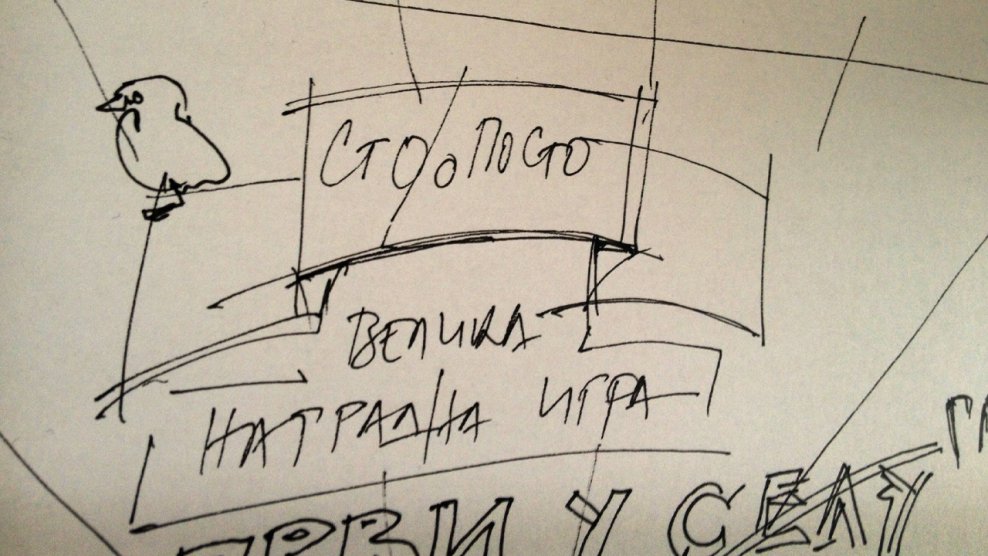 СТО ПОСТО
ВЕЛИКА
НАГРАДНА ИГРА
ПРВИ У СЕЛУ